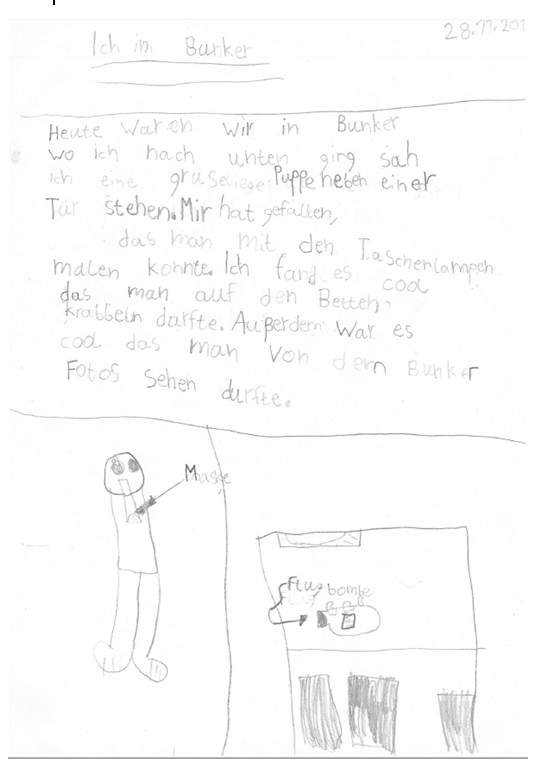 28.11.201
Ich im Bunker
Heute waren wir in Bunker
wo ich nach unten ging sah
ich eine gruseliege Puppe neben einer
Tür stehen. Mir hat gefallen,
das man mit den Taschenlampen
malen konnte. Ich fand es cool
das man auf den Betten
krabbeln darfte. Außerdem war es
cool das man von dem Bunker
Fotos sehen durfte.
Maske
Flugbombe